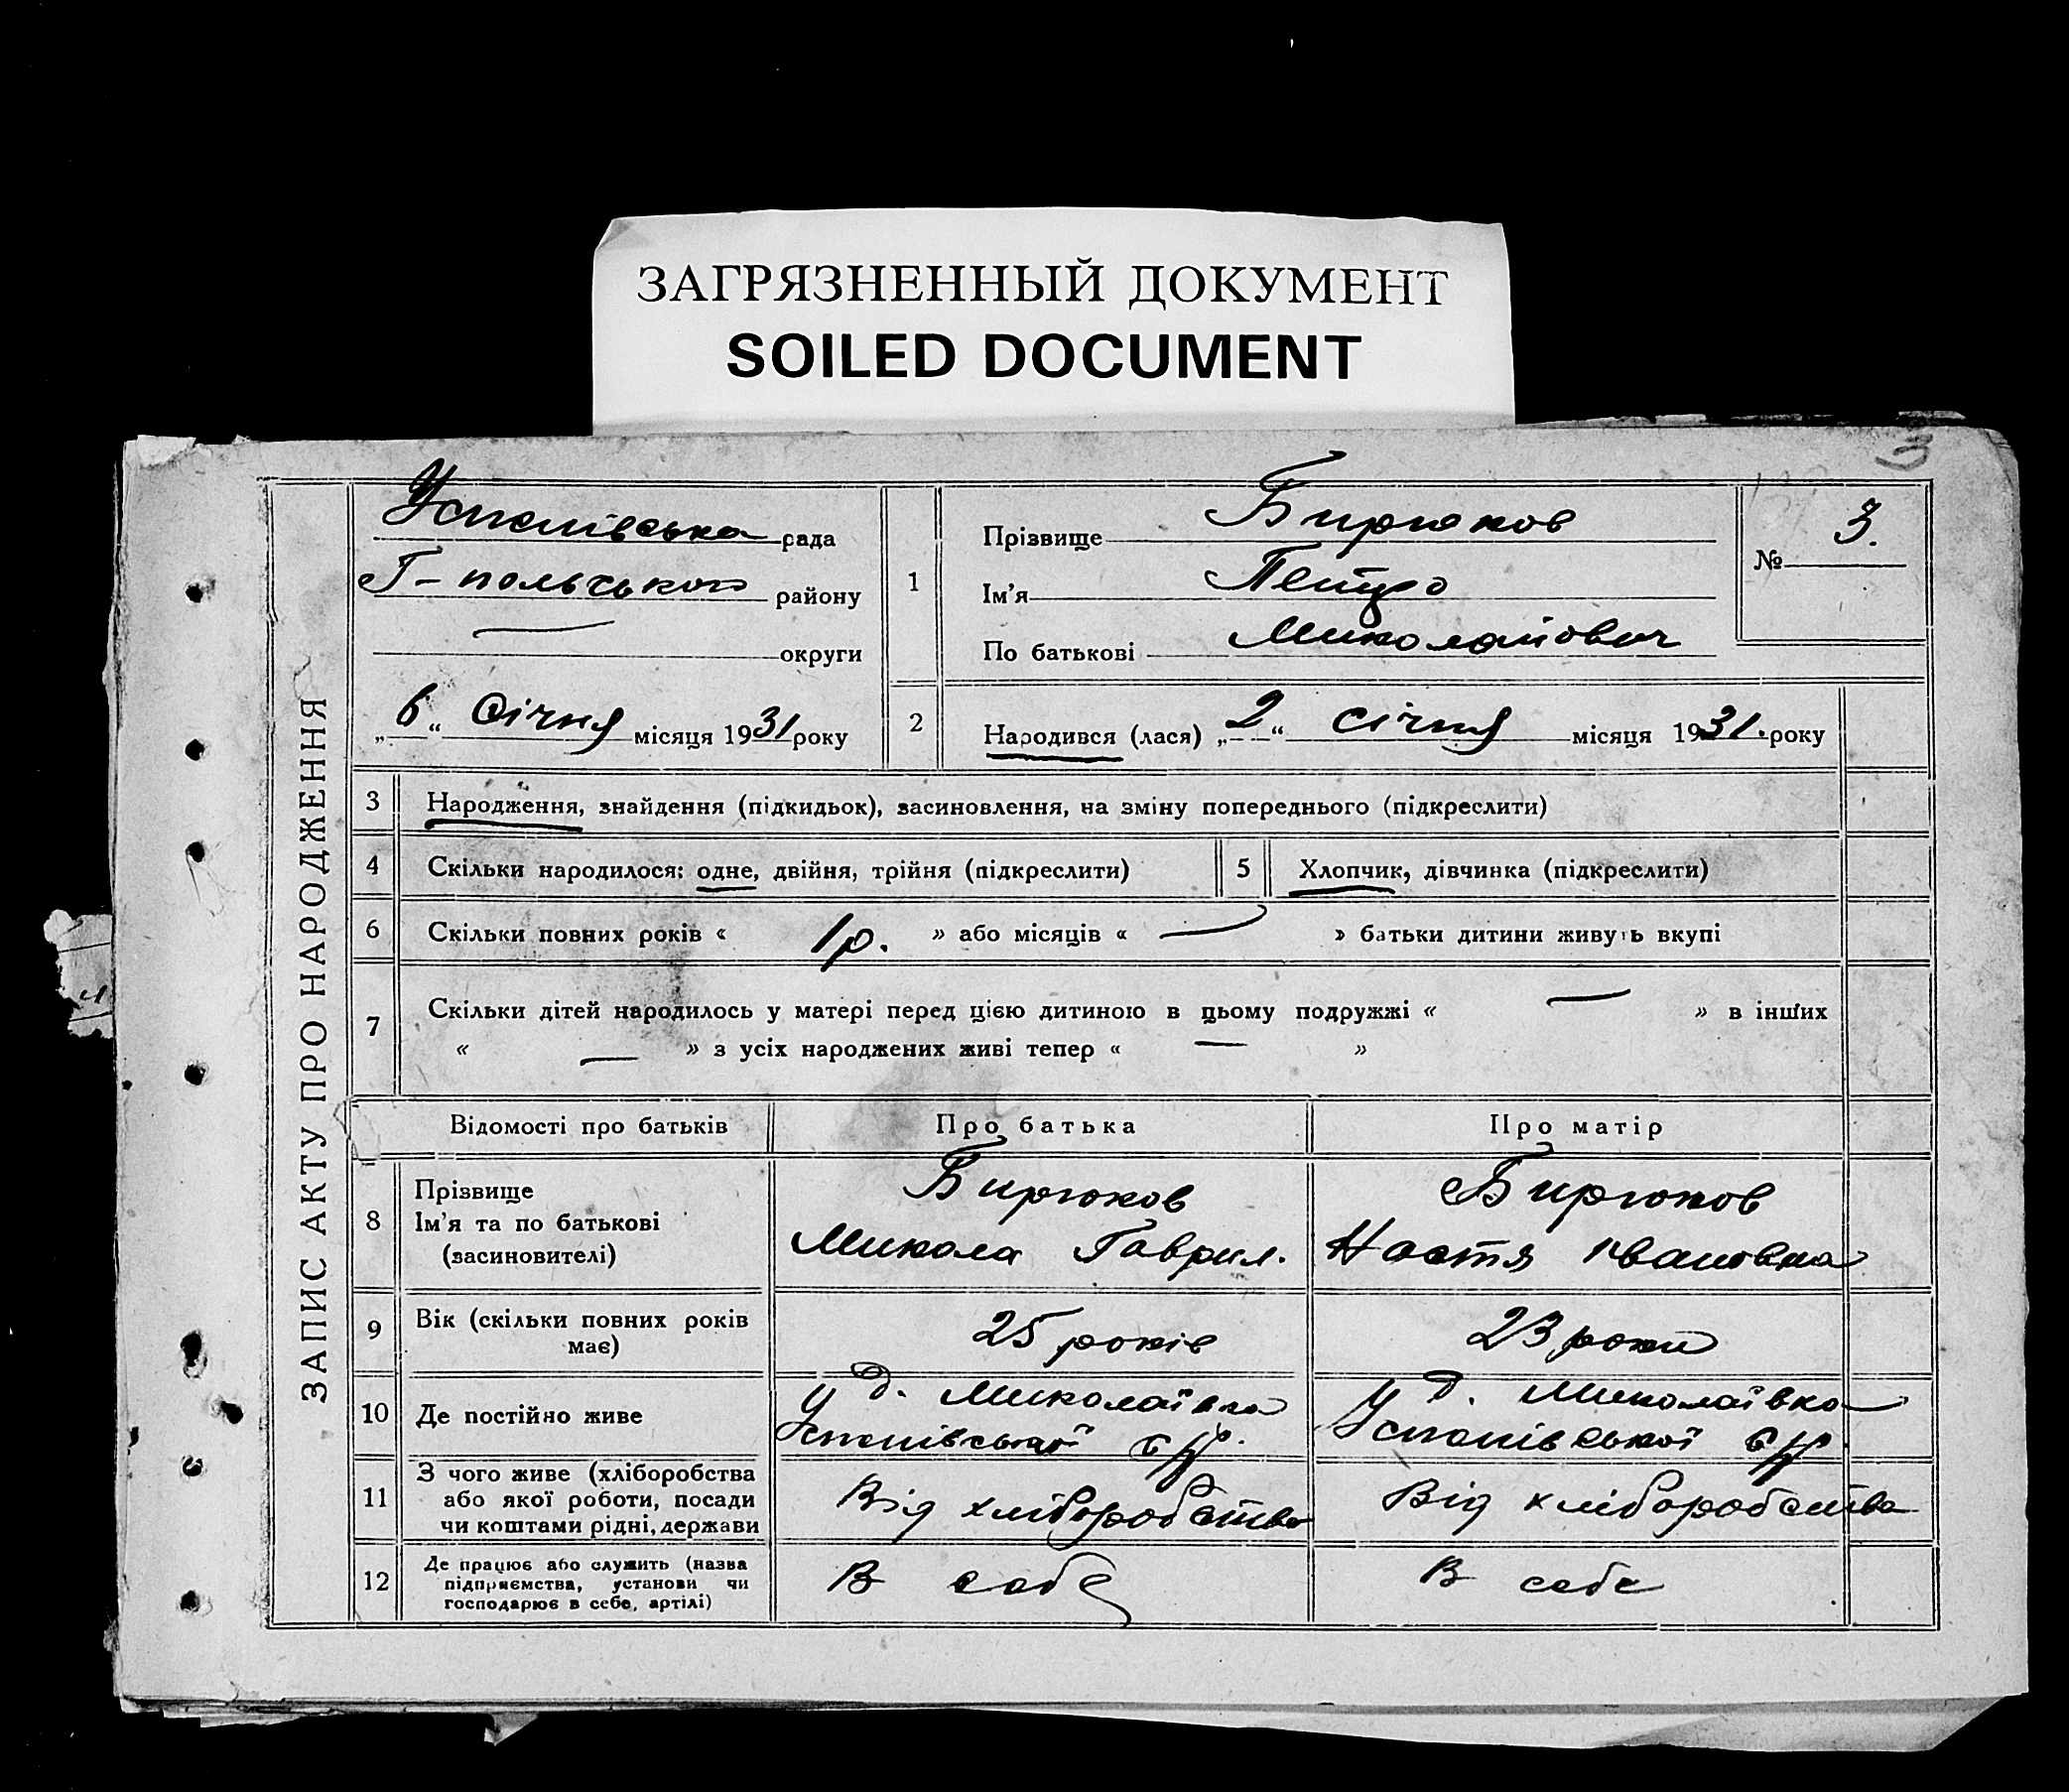 ЗАГРЯЗНЕННЫЙ ДОКУМЕНТ
SOILED DOCUMENT
3
ЗАПИС АКТУ ПРО НАРОДЖЕННЯ
Успенівська рада
Г-польського району
округи
„6“ Січня місяця 1931 року
1
Прізвище Бирюков
Ім'я Петро
По батькові Миколайович
№ 3.
2
Народився (лася) „2“ січня місяця 1931. року
3 Народження, знайдення (підкидьок), засиновлення, на зміну попереднього (підкреслити)
4 Скільки народилося: одне, двійня, трійня (підкреслити)
5 Хлопчик, дівчинка (підкреслити)
6 Скільки повних років « 1р. » або місяців « — » батьки дитини живуть вкупі
7 Скільки дітей народилось у матері перед цією дитиною в цьому подружжі « — » в інших
« — » з усіх народжених живі тепер « — »
Відомості про батьків Про батька Про матір
8
Прізвище
Ім'я та по батькові
(засиновителі)
Бирюков
Микола Гаврил.
Бирюков
Настя Івановна
9
Вік (скільки повних років
має)
25 років
23 роки
10 Де постійно живе
д. Миколаївка
Успенівської с/р.
д. Миколаївка
Успенівської с/р
11
З чого живе (хліборобства
або якої роботи, посади
чи коштами рідні, держави
Від хліборобства
Від хліборобства
12
Де працює або служить (назва
підприємства, установи чи
господарює в себе, артілі)
В себе
В себе